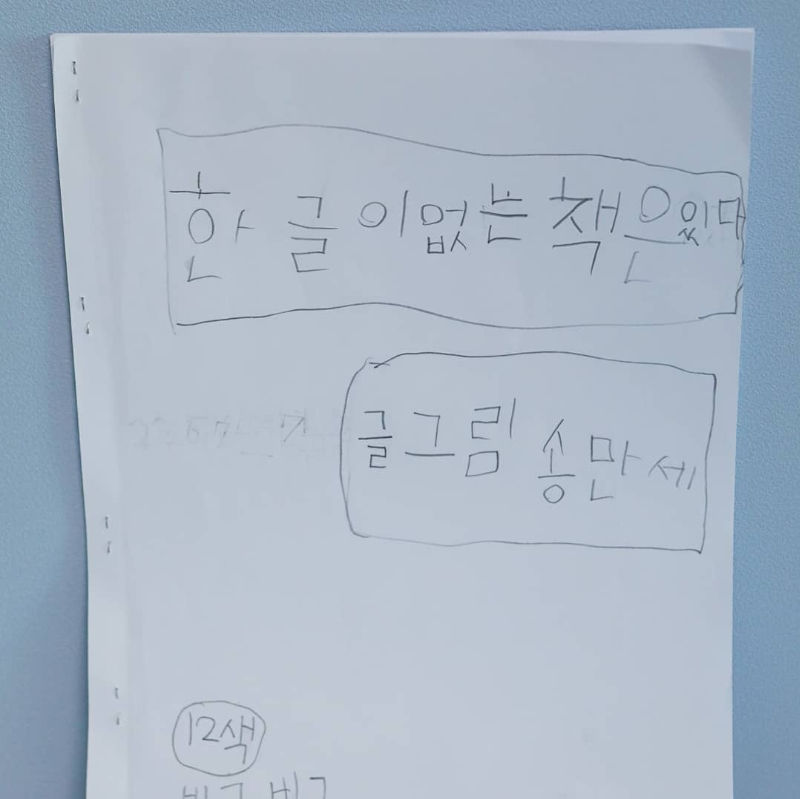 한글이없는책은있다
글그림 송만세
12색